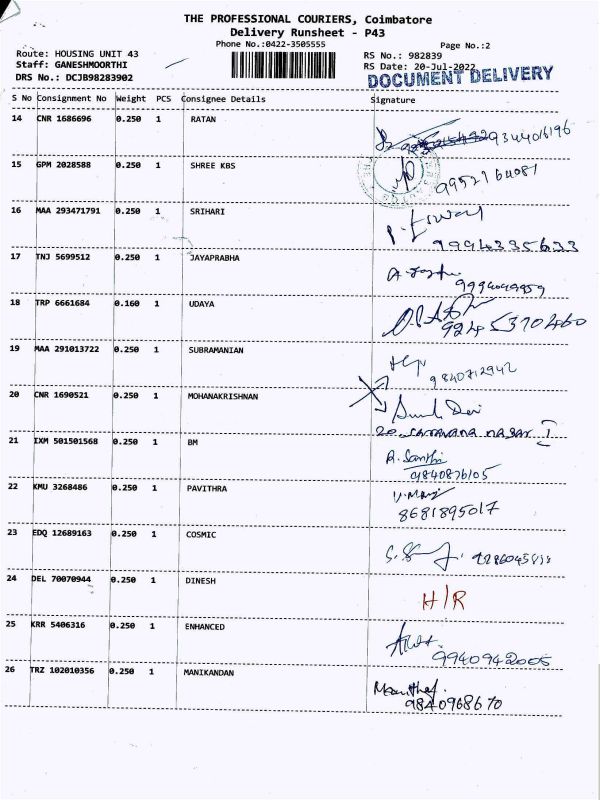 THE PROFESSIONAL COURIERS, Coimbatore
Delivery Runsheet - P43
Phone No.:0422-3505555
Page No.:2
Route: HOUSING UNIT 43
RS No.: 982839
Staff: GANESHMOORTHI
RS Date: 20-Jul-2022
DRS No.: DCJB98283902
DOCUMENT DELIVERY
S No Consignment No Weight PCS Consignee Details Signature
14 CNR 1686696 0.250 1 RATAN
9344016196
15 GPM 2028588 0.250 1 SHREE KBS
9952164081
16 MAA 293471791 0.250 1 SRIHARI
9994335633
17 TNJ 5699512 0.250 1 JAYAPRABHA
9994049959
18 TRP 6661684 0.160 1 UDAYA
9245370460
19 MAA 291013722 0.250 1 SUBRAMANIAN
9840712942
20 CNR 1690521 0.250 1 MOHANAKRISHNAN
20, saravana nagar I
21 IXM 501501568 0.250 1 BM
R. Santhi
9840876105
22 KMU 3268486 0.250 1 PAVITHRA
8681895017
23 EDQ 12689163 0.250 1 COSMIC
24 DEL 70070944 0.250 1 DINESH
H/R
25 KRR 5406316 0.250 1 ENHANCED
9940942005
26 TRZ 102010356 0.250 1 MANIKANDAN
9840968670